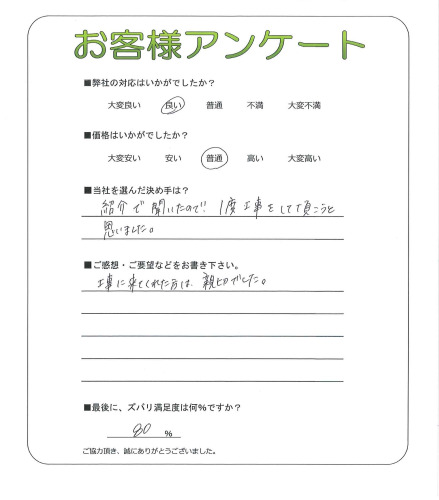 お客様アンケート
■弊社の対応はいかがでしたか？
大変良い 良い 普通 不満 大変不満
■価格はいかがでしたか？
大変安い 安い 普通 高い 大変高い
■当社を選んだ決め手は？
紹介で聞いたので、1度工事をして頂こうと
思いました。
■ご感想・ご要望などをお書き下さい。
工事に来てくれた方は、親切でした。
■最後に、ズバリ満足度は何％ですか？
80 %
ご協力頂き、誠にありがとうございました。